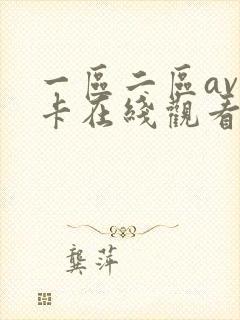 一區二區av
卡在綫觀看
龔萍